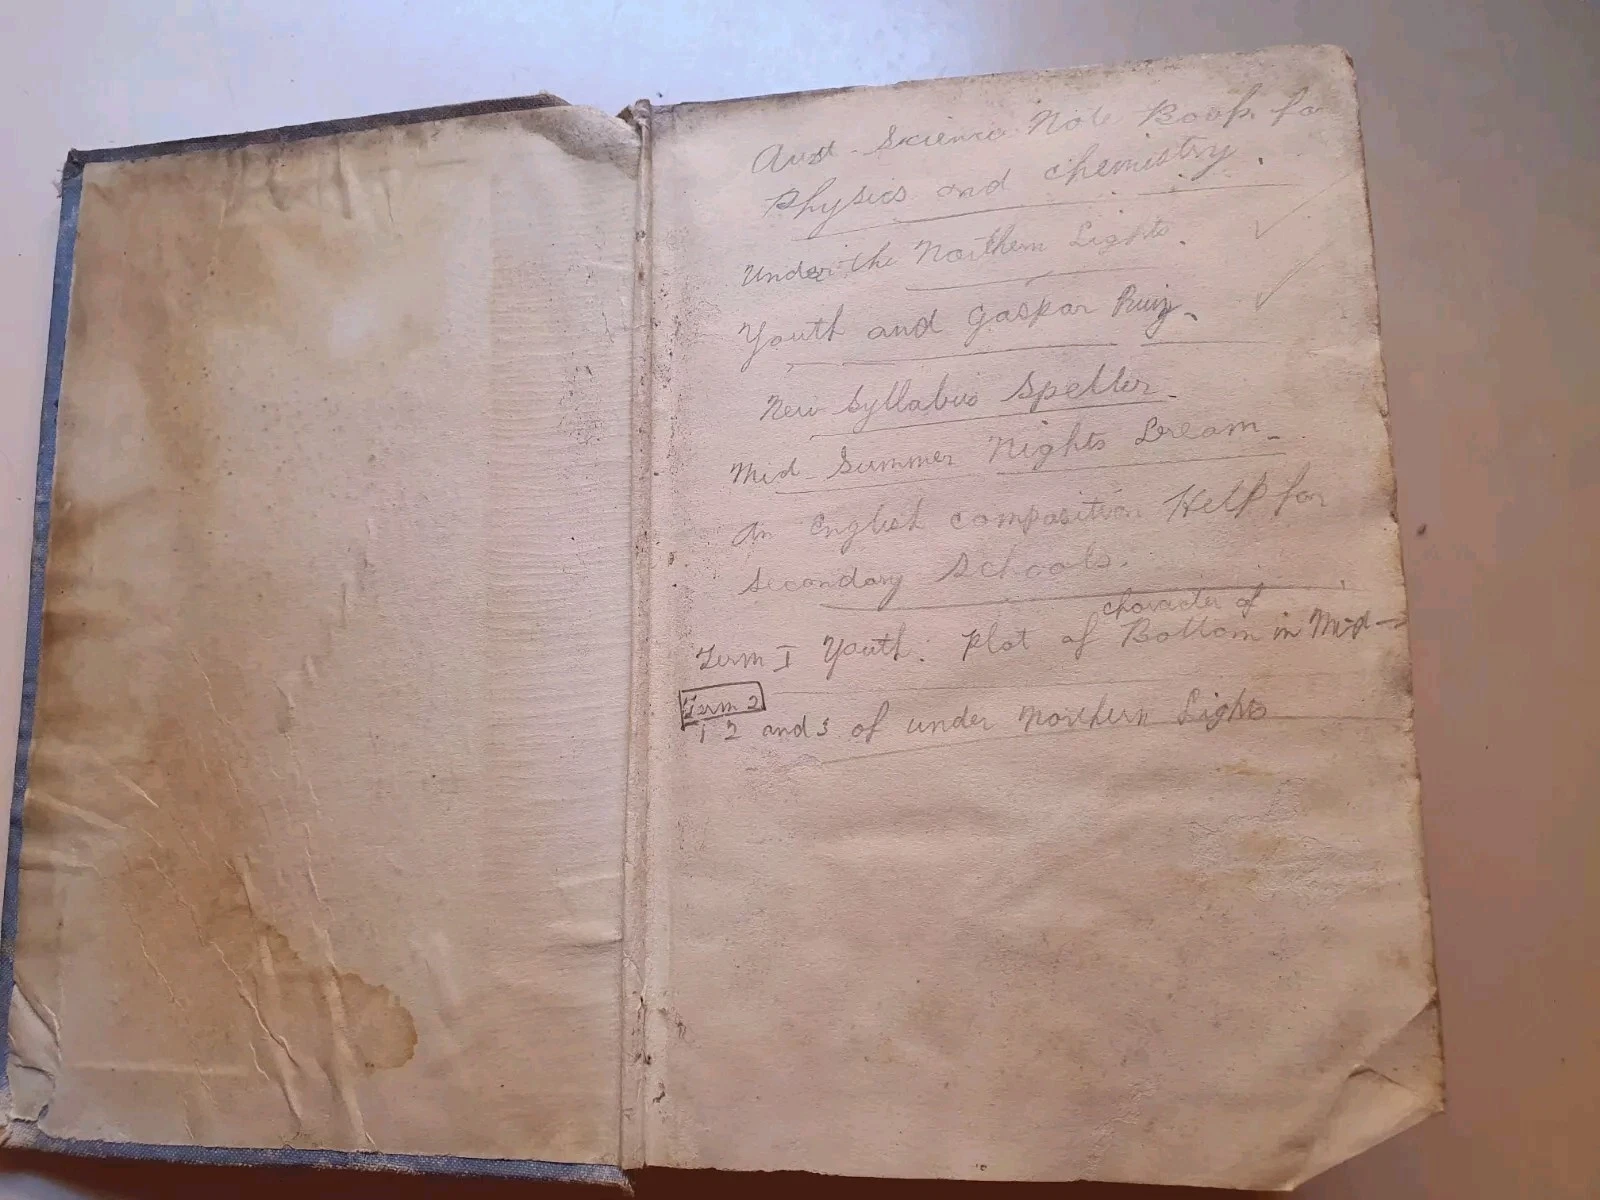 Aust. Science Note Book for
Physics and chemistry.
Under the Northern Lights.
Youth and Gaspar Ruiz.
New Syllabus Speller.
Mid-Summer Nights Dream.
An English composition Help for
secondary schools.
character of
Term I Youth: Plot of Bottom in Mid-
Term 2
1 2 and 3 of under Northern Lights